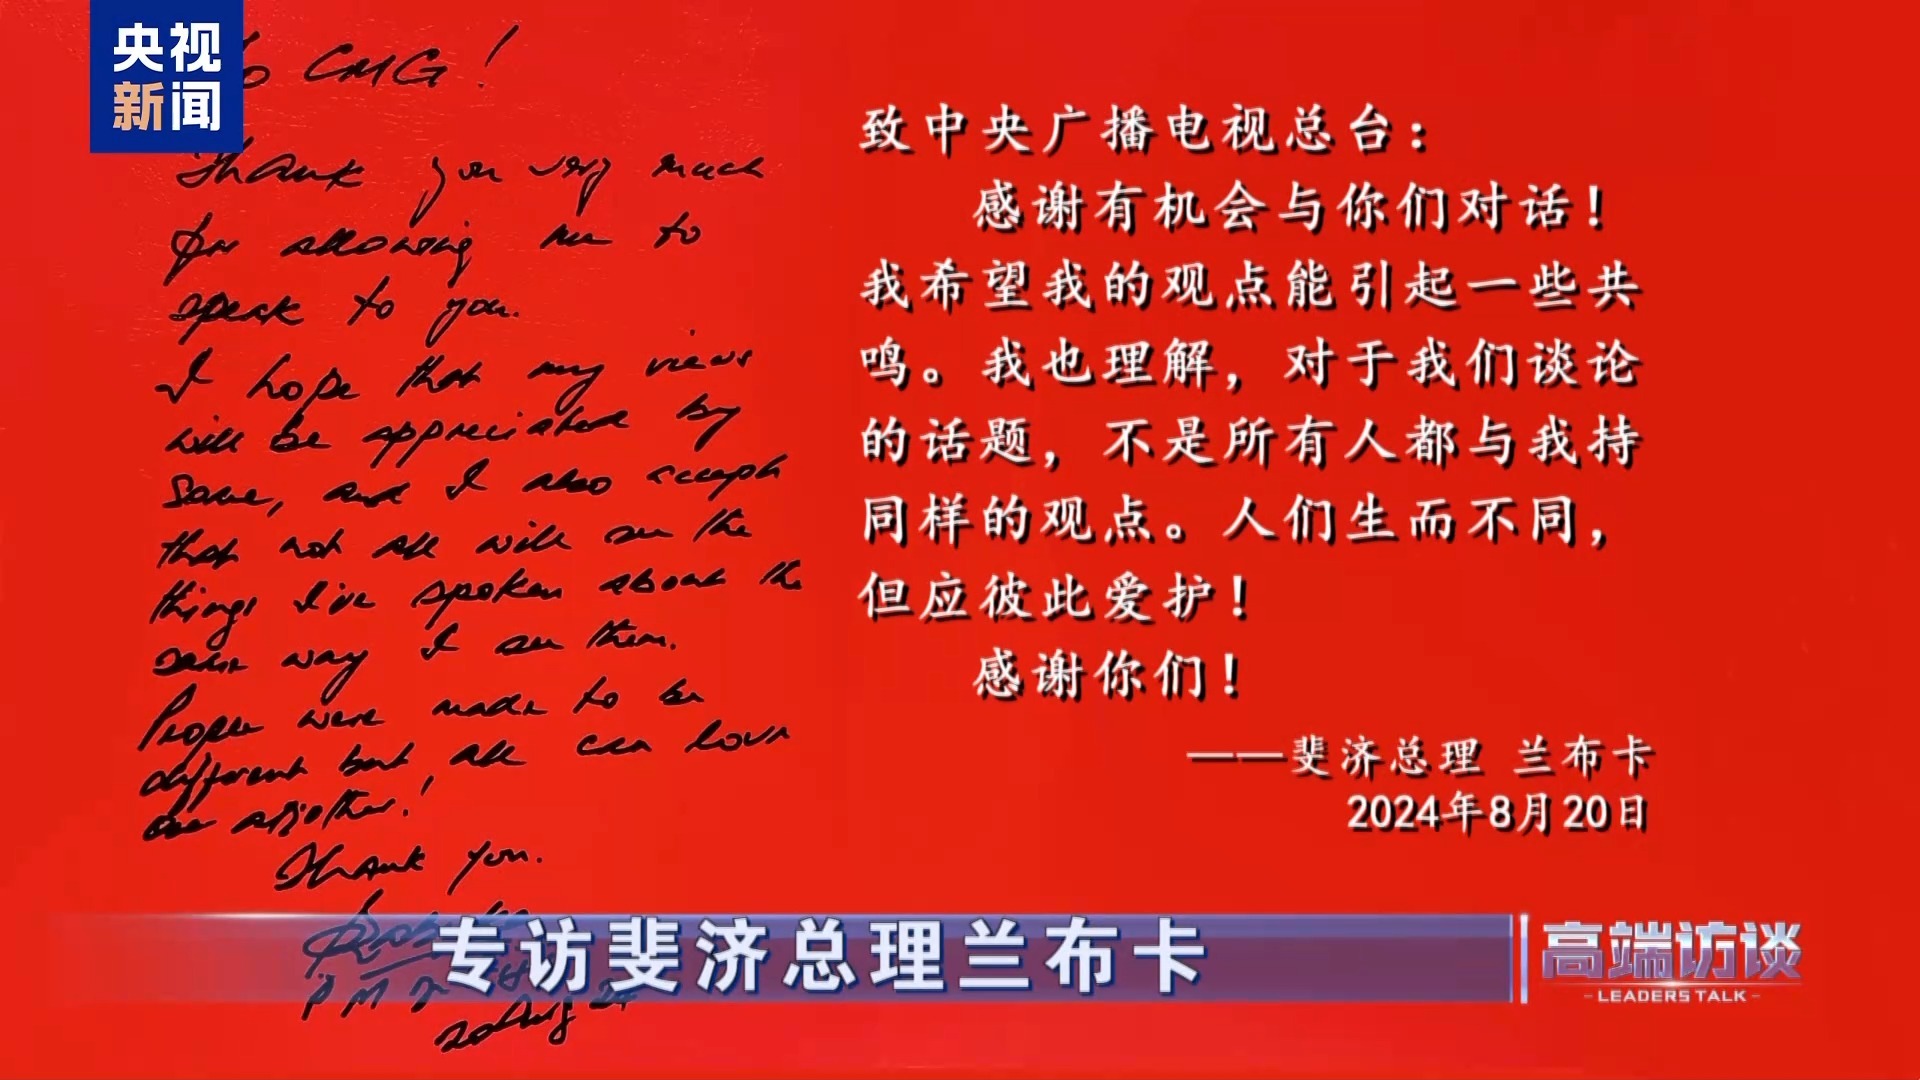 央视
新闻
To CMG!
Thank you very much
for allowing me to
speak to you.
I hope that my views
will be appreciated by
some, and I also accept
that not all will see the
things I've spoken about the
same way I see them.
People were made to be
different but, all can love
one another!
Thank you.
PM
20 Aug 24
致中央广播电视总台：
感谢有机会与你们对话！
我希望我的观点能引起一些共
鸣。我也理解，对于我们谈论
的话题，不是所有人都与我持
同样的观点。人们生而不同，
但应彼此爱护！
感谢你们！
——斐济总理 兰布卡
2024年8月20日
专访斐济总理兰布卡
高端访谈
- LEADERS TALK -